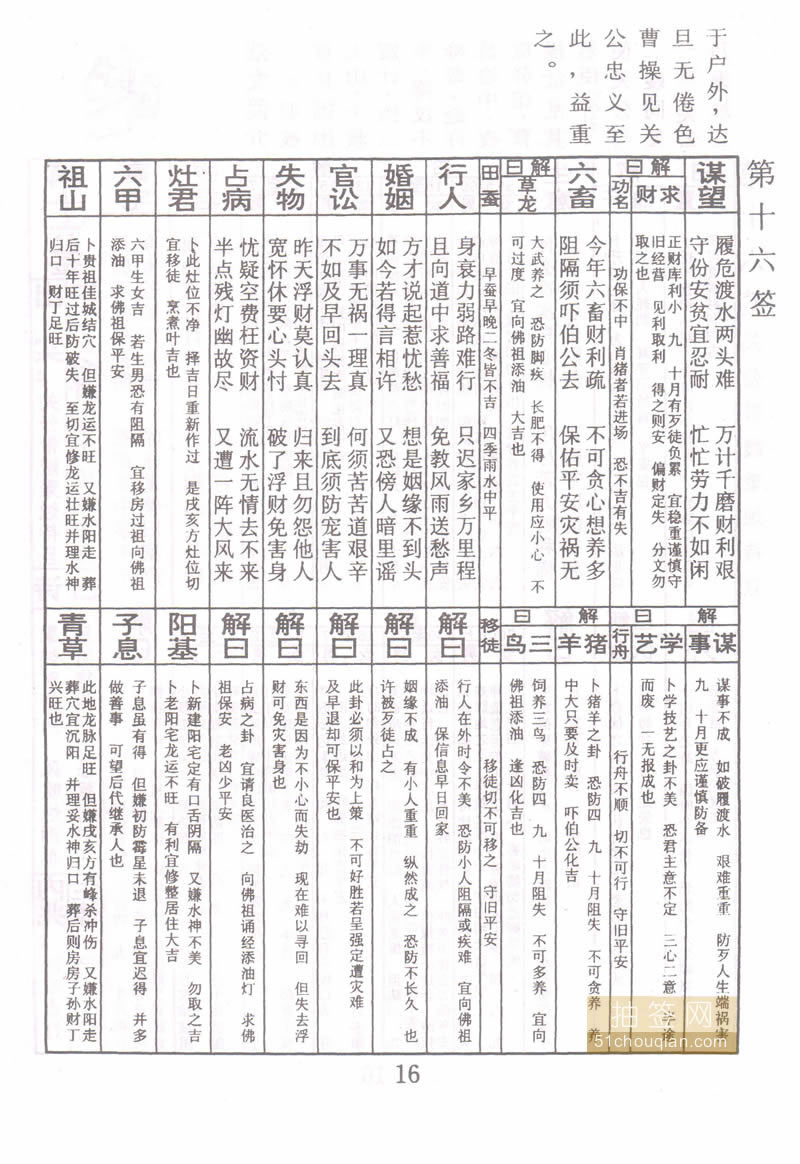 于户外，达
旦无倦色
曹操见关
公忠义至
此，益重
之。
第十六签
谋望
履危渡水两头难 万计千磨财利艰
守份安贫宜忍耐 忙忙劳力不如闲
解曰
求财
正财库利小 九 十月有歹徒负累 宜稳重谨慎守
旧经营 见利取利 得之则安 偏财定失 分文勿
取之也
功名
功保不中 肖猪者若进场 恐不吉有失
六畜
今年六畜财利疏 不可贪心想养多
阻隔须吓伯公去 保佑平安灾祸无
解曰
草龙
大武养之 恐防脚疾 长肥不得 使用应小心 不
可过度 宜向佛祖添油 大吉也
田蚕
早蚕早晚二冬皆不吉 四季雨水中平
行人
身衰力弱路难行 只迟家乡万里程
且向道中求善福 免教风雨送愁声
婚姻
方才说起惹忧愁 想是姻缘不到头
如今若得言相许 又恐傍人暗里谣
官讼
万事无祸一理真 何须苦苦道艰辛
不如及早回头去 到底须防宠害人
失物
昨天浮财莫认真 归来且勿怨他人
宽怀休要心头忖 破了浮财免害身
占病
忧疑空费枉资财 流水无情去不来
半点残灯幽故尽 又遭一阵大风来
灶君
卜此灶位不净 择吉日重新作过 是戌亥方灶位切
宜移徒 烹煮叶吉也
六甲
六甲生女吉 若生男恐有阻隔 宜移房过祖向佛祖
添油 求佛祖保平安
祖山
卜贵祖佳城结穴 但嫌龙运不旺 又嫌水阳走 葬
后十年旺过后防破失 至切宜修龙运壮旺并理水神
归口 财丁足旺
解曰
谋事
谋事不成 如破履渡水 艰难重重 防歹人生端祸害
九 十月更应谨慎防备
学艺
卜学技艺之卦不美 恐君主意不定 三心二意 半途
而废 一无报成也
行舟
行舟不顺 切不可行 守旧平安
解曰
猪羊
卜猪羊之卦 恐防四 九 十月阻失 不可贪养 养
中大只要及时卖 吓伯公化吉
三鸟
饲养三鸟 恐防四 九 十月阻失 不可多养 宜向
佛祖添油 逢凶化吉也
移徒
移徒切不可移之 守旧平安
解曰
行人在外时令不美 恐防小人阻隔或疾难 宜向佛祖
添油 保信息早日回家
解曰
姻缘不成 有小人重重 纵然成之 恐防不长久 也
许被歹徒占之
解曰
此卦必须以和为上策 不可好胜若呈强定遭灾难
及早退却可保平安也
解曰
东西是因为不小心而失劫 现在难以寻回 但失去浮
财可免灾害身也
解曰
占病之卦 宜请良医治之 向佛祖诵经添油灯 求佛
祖保安 老凶少平安
阳基
卜新建阳宅定有口舌阴隔 又嫌水神不美 勿取之吉
卜老阳宅龙运不旺 有利宜修整居住大吉
子息
子息虽有得 但嫌初防霉星未退 子息宜迟得 并多
做善事 可望后代继承人也
青草
此地龙脉足旺 但嫌戌亥方有峰杀冲伤 又嫌水阳走
葬穴宜沉阳 并理妥水神归口 葬后则房房子孙财丁
兴旺也
16
抽签网
51chouqian.com